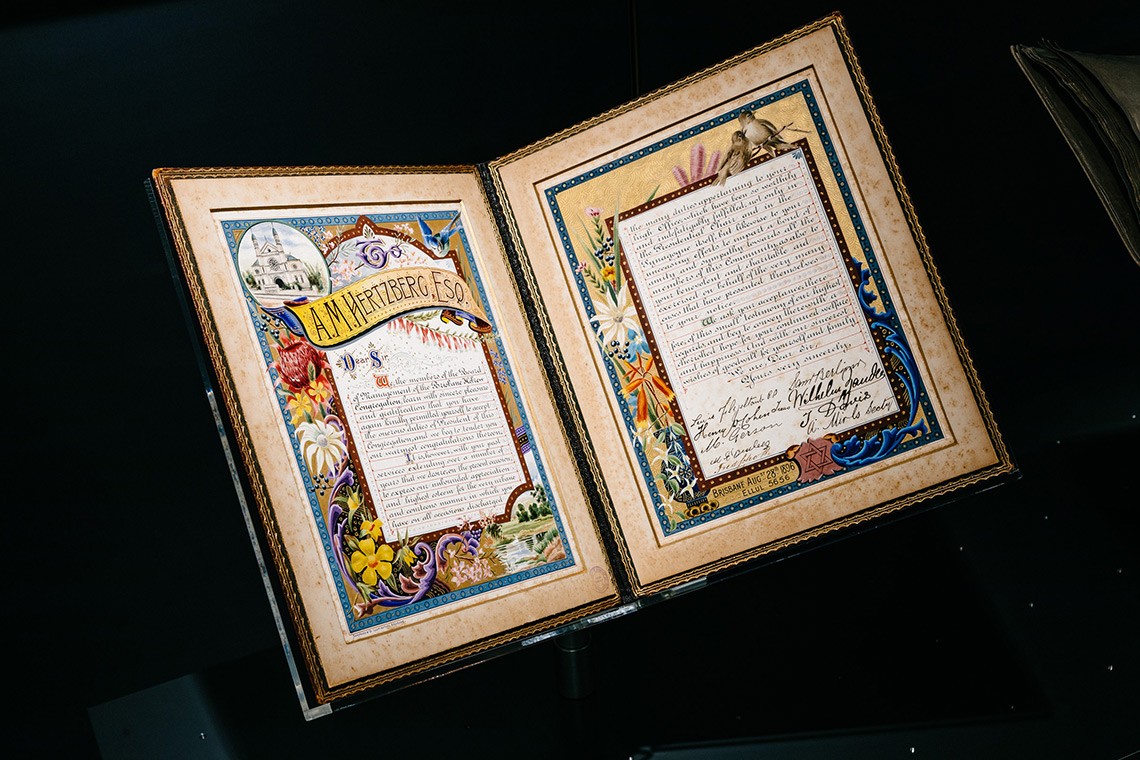 To
A.M. HERTZBERG, ESQ.
Dear Sir
We, the members of the Board
of Management of the Brisbane Hebrew
Congregation, learn with sincere pleasure
and gratification that you have
again kindly permitted yourself to accept
the onerous duties of President of the
Congregation, and we beg to tender you
our warmest congratulations thereon.
It is, however, with your past
services extending over a number of
years that we desire on the present occasion
to express our unbounded appreciation
and highest esteem for the very urbane
and courteous manner in which you
have on all occasions discharged
the many duties appertaining to your
high Office, which have been so worthily
and skilfully fulfilled, not only in
the Presidential Chair, and in the
Synagogue itself, but likewise to your
unceasing efforts to impart to all the
sympathy towards each and every
member of this Community, and also to
your benevolent, charitable and
exercised on behalf of the many
cases that have presented themselves
to you.
We ask your acceptance, there-
fore of this small testimony of our highest
regards, and beg to convey therewith a
heartfelt hope for your continued welfare
and happiness. And with our united
wishes of good to yourself and family
We are, Dear Sir,
Yours very sincerely,
Henry
M. Gerson
Wilhelm Zander
T. Davis
BRISBANE AUG. 28th 1896
ELLUL 5656